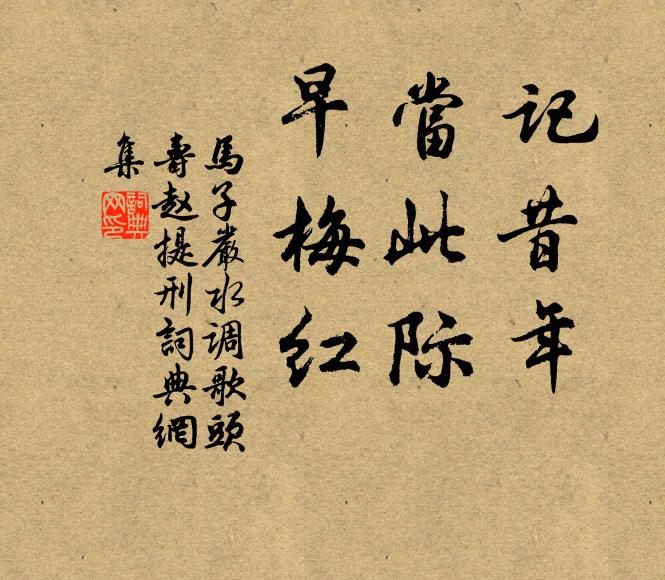 记昔年
當此际
早梅红
馬子嚴水调歌頭
壽赵提刑詞典網
集
詞典
网印